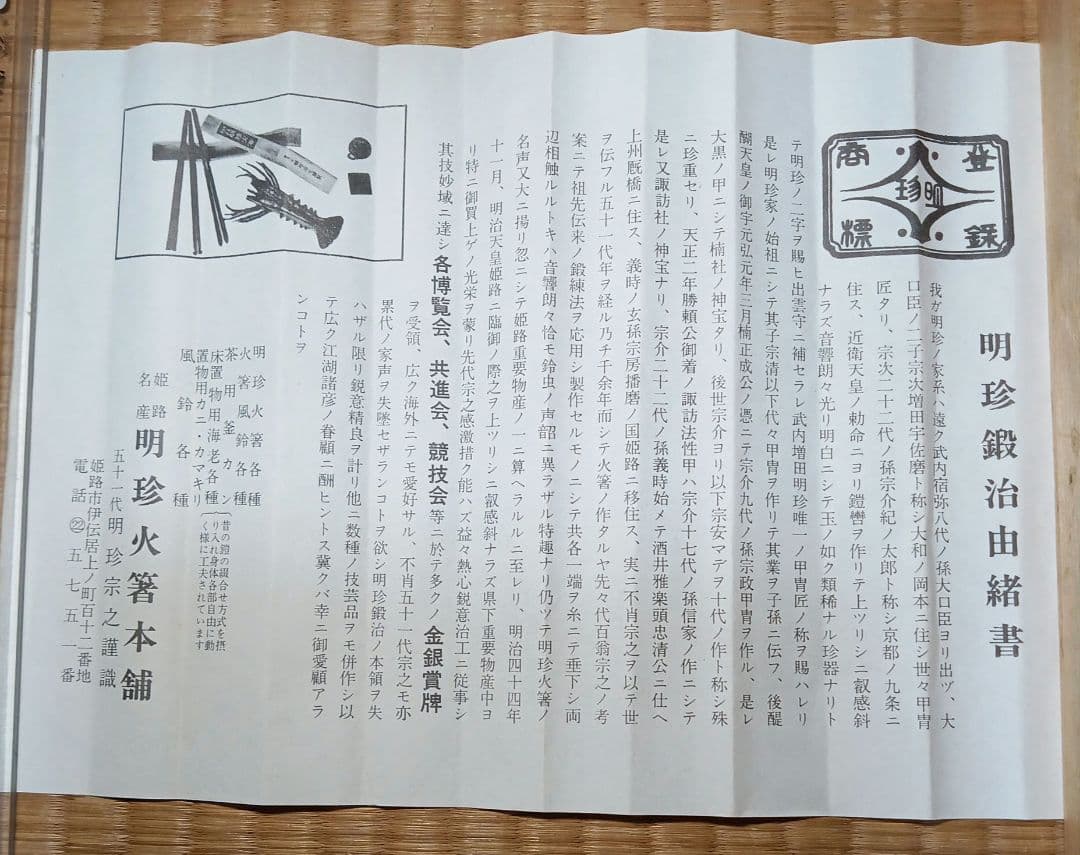 登録
商標
明珍
明珍鍛冶由緒書
我ガ明珍ノ家系ハ遠ク武内宿弥八代ノ孫大口臣ヨリ出ヅ、大
口臣ノ二子宗次増田宇佐磨ト称シ大和ノ岡本ニ住シ世々甲冑
匠タリ、宗次二十二代ノ孫宗介紀ノ太郎ト称シ京都ノ九条ニ
住ス、近衛天皇ノ勅命ニヨリ鎧轡ヲ作リテ上ツリシニ叡感斜
ナラズ音響朗々光リ明白ニシテ玉ノ如ク類稀ナル珍器ナリト
テ明珍ノ二字ヲ賜ヒ出雲守ニ補セラレ武内増田明珍唯一ノ甲冑匠ノ称ヲ賜ハレリ
是レ明珍家ノ始祖ニシテ其子宗清以下代々甲冑ヲ作リテ其業ヲ子孫ニ伝フ、後醍
醐天皇ノ御宇元弘元年三月楠正成公ノ憑ニテ宗介九代ノ孫宗政甲冑ヲ作ル、是レ
大黒ノ甲ニシテ楠社ノ神宝タリ、後世宗介ヨリ以下宗安マデヲ十代ノ作ト称シ殊
ニ珍重セリ、天正二年勝頼公御着ノ諏訪法性甲ハ宗介十七代ノ孫信家ノ作ニシテ
是レ又諏訪社ノ神宝ナリ、宗介二十二代ノ孫義時始メテ酒井雅楽頭忠清公ニ仕ヘ
上州厩橋ニ住ス、義時ノ玄孫宗房播磨ノ国姫路ニ移住ス、実ニ不肖宗之ヲ以テ世
ヲ伝フル五十一代年ヲ経ル乃チ千余年而シテ火箸ノ作タルヤ先々代百翁宗之ノ考
案ニテ祖先伝来ノ鍛練法ヲ応用シ製作セルモノニシテ共各一端ヲ糸ニテ垂下シ両
辺相触ルルトキハ音響朗々恰モ鈴虫ノ声韶ニ異ラザル特趣ナリ仍ツテ明珍火箸ノ
名声又大ニ揚リ忽ニシテ姫路重要物産ノ一ニ算ヘラルルニ至レリ、明治四十四年
十一月、明治天皇姫路ニ臨御ノ際之ヲ上ツリシニ叡感斜ナラズ県下重要物産中ヨ
リ特ニ御買上ゲノ光栄ヲ蒙リ先代宗之感激措ク能ハズ益々熱心鋭意治工ニ従事シ
其技妙域ニ達シ各博覧会、共進会、競技会等ニ於テ多クノ金銀賞牌
ヲ受領、広ク海外ニテモ愛好サル、不肖五十一代宗之モ亦
累代ノ家声ヲ失墜セザランコトヲ欲シ明珍鍛治ノ本領ヲ失
ハザル限リ鋭意精良ヲ計リ他ニ数種ノ技芸品ヲモ併作シ以
テ広ク江湖諸彦ノ眷顧ニ酬ヒントス冀クバ幸ニ御愛顧アラ
ンコトヲ
明珍火箸各種
火箸風鈴各種
茶用釜カン
床置物用海老各種
置物用カニ・カマキリ
風鈴各種
昔の鎧の綴合せ方式を摂
り入れ身体各部自由に動
く様に工夫されています
姫路
名産
明珍火箸本舗
五十一代明珍宗之謹識
姫路市伊伝居上ノ町百十二番地
電話㉒五七五一番